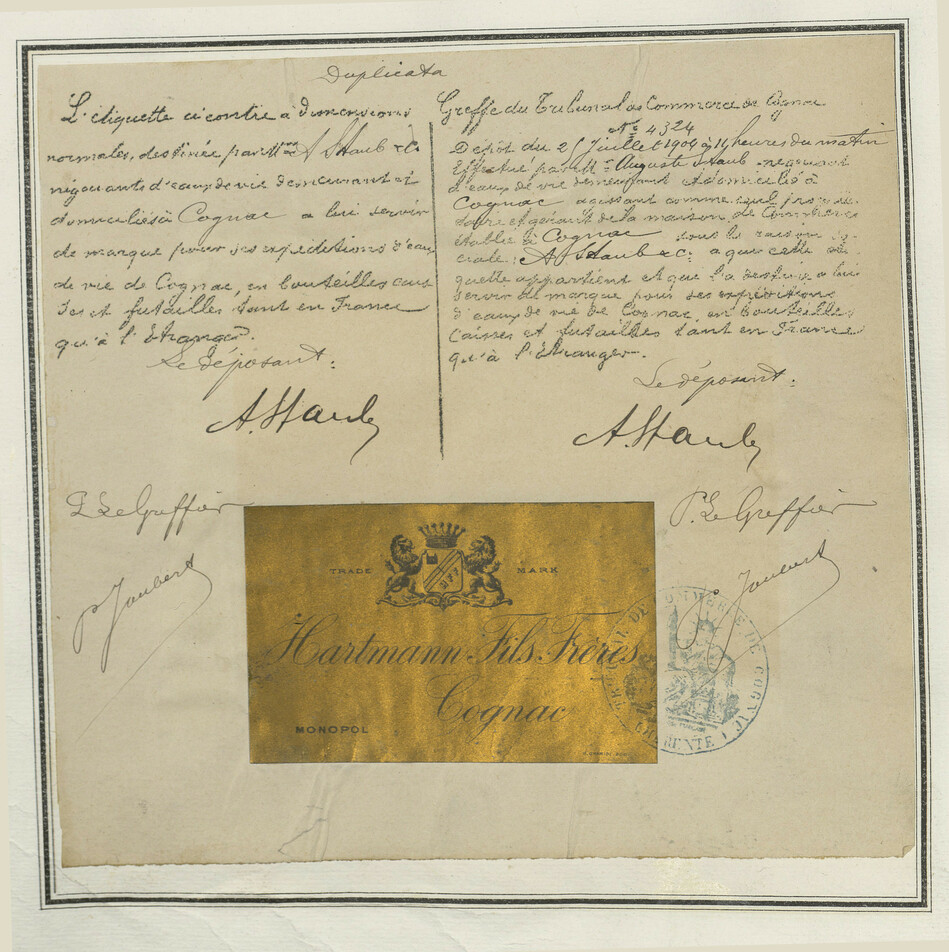 Duplicata
L'étiquette ci contre à dimensions
normales, destinée par Mrs A Staub & Co
négociants d'eaux de vie demeurant et
domiciliés à Cognac a lui servir
de marque pour ses expéditions d'eau
de vie de Cognac, en bouteilles cais
ses et futailles tant en France
qu'à l'Etranger.
Le déposant:
A. Staub
P. Le Greffier
P Joubert
Greffe du Tribunal de Commerce de Cognac
No 4324
Dépôt du 25 Juillet 1904 à 11 heures du matin
Effectué par Mr Auguste Staub négociant
d'eaux de vie demeurant et domicilié à
Cognac agissant comme seul proprié-
taire et gérant de la maison de Commerce
établie à Cognac sous la raison so-
ciale: A Staub & C. a que cette éti-
quette appartient et que l'a destinée a lui
servir de marque pour ses expéditions
d'eaux de vie de Cognac, en bouteilles
Caisses et futailles tant en France
qu'à l'Etranger.
Le déposant:
A. Staub
P. Le Greffier
P Joubert
TRADE MARK
Hartmann Fils Frères
Cognac
MONOPOL
TRIBUNAL DE COMMERCE DE COGNAC
CHARENTE